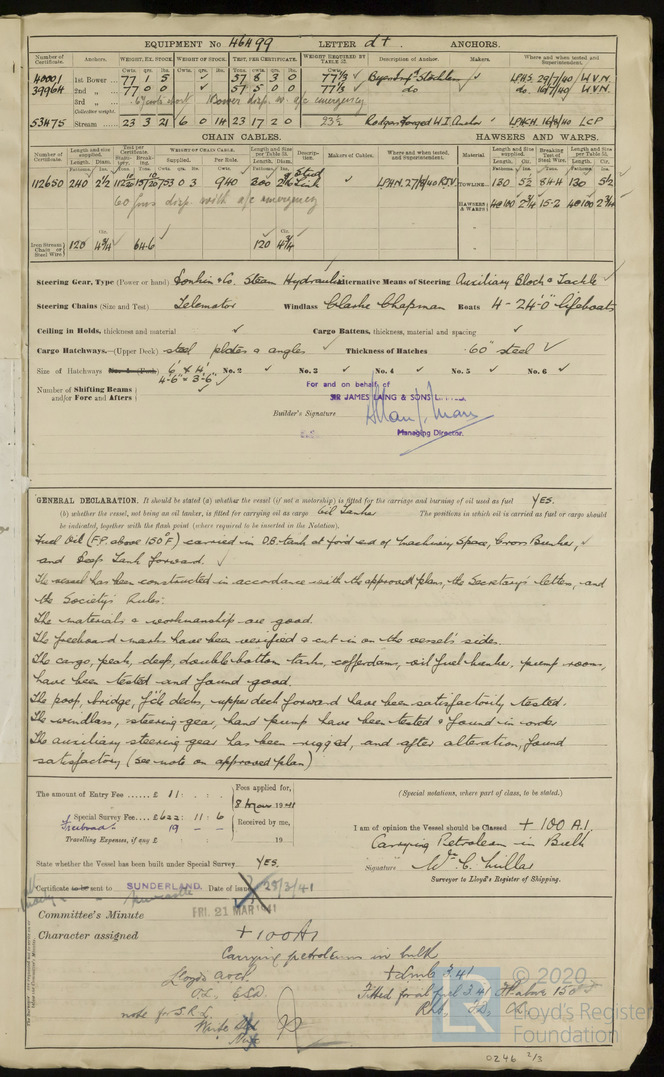 EQUIPMENT No 46499 LETTER d† ANCHORS.
Number of Certificate. Anchors. WEIGHT, EX. STOCK. WEIGHT OF STOCK. TEST, PER CERTIFICATE. WEIGHT REQUIRED BY TABLE 31. Description of Anchor. Makers. Where and when tested and Superintendent.
Cwts. qrs. lbs. Cwts. qrs. lbs. Tons. cwts. qrs. lbs. Cwts.
40001 1st Bower 77 1 5 ✓ 57 8 3 0 77¾ ✓ Stockless ✓ LPHS. 29/7/40 W.V.N.
39964 2nd „ 77 0 0 ✓ 57 5 0 0 77¾ ✓ do do. 16/7/40 W.V.N.
3rd „ Bower disp. w. a/c emergency
Collective weight.
53475 Stream 23 3 21 6 0 14 23 17 2 0 23½ Rodgers Forged W.I. Anchor LPHCH. 16/8/40 LCP
CHAIN CABLES. HAWSERS AND WARPS.
Number of Certificate. Length and size supplied. Test per Certificate. WEIGHT OF CHAIN CABLE. Length and Size per Table 31. Description. Makers of Cables. Where and when tested, and Superintendent. Material Length and size supplied. Breaking Test of Steel Wire. Length and Size per Table 31.
112650 240 2½ 530 3 940 300 Stud Link ✓ LPHN. 27/8/40 TOWLINE 130 5½ 84H 130 5½
60 fms disp. with a/c emergency HAWSERS & WARPS 4@100 2¾ 15·2 4@100 2¾
Iron Stream Chain or Steel Wire 120 4¾ 64·6 120 4¾
Steering Gear, Type (Power or hand) Donkin & Co. Steam Hydraulic Alternative Means of Steering Auxiliary Block & Tackle ✓
Steering Chains (Size and Test) Telemotor Windlass Clarke Chapman Boats 4 - 24'-0" lifeboats
Ceiling in Holds, thickness and material ✓ Cargo Battens, thickness, material and spacing ✓
Cargo Hatchways.—(Upper Deck) steel plates & angles ✓ Thickness of Hatches ·60" steel ✓
Size of Hatchways 6' x 4' No. 2 ✓ No. 3 ✓ No. 4 ✓ No. 5 ✓ No. 6 ✓
4'-6" x 3'-6" ✓
Number of Shifting Beams and/or Fore and Afters ✓
For and on behalf of
SIR JAMES LAING & SONS LIMITED
Builder's Signature
Managing Director.
GENERAL DECLARATION. It should be stated (a) whether the vessel (if not a motorship) is fitted for the carriage and burning of oil used as fuel YES.
(b) whether vessel, not being an oil tanker, is fitted for carrying oil as cargo Oil Tanker The positions in which oil is carried as fuel or cargo should
be indicated, together with the flash point (where required to be inserted in the Notation).
Fuel Oil (F.P. above 150°F) carried in D.B. tank at for'd end of Machinery Space, Cross Bunker, ✓
and Deep Tank forward. ✓
The vessel has been constructed in accordance with the approved plans, the Secretary's letters, and
the Society's Rules.
The materials & workmanship are good.
The freeboard marks have been verified & cut in on the vessel's sides.
The cargo, peak, deep, double bottom tanks, cofferdams, oil fuel bunker, pump rooms,
have been tested and found good.
The poop, bridge, f'c'le decks, upper deck forward have been satisfactorily tested.
The windlass, steering gear, hand pump have been tested & found in order
The auxiliary steering gear has been rigged, and after alteration, found
satisfactory (see note on approved plan)
The amount of Entry Fee ...... £ 11 : : Fees applied for, (Special notations, where part of class, to be stated.)
8 Mar 1941
Special Survey Fee £622 : 11 : 6 Received by me, I am of opinion the Vessel should be Classed + 100 A.1.
Freeboard 19 - -
Carrying Petroleum in Bulk
Travelling Expenses, if any £ 19
Signature Wm. C. Millar
Surveyor to Lloyd's Register of Shipping.
State whether the Vessel has been built under Special Survey YES.
Certificate to be sent to SUNDERLAND. Date of issue 25/3/41
Newcastle
FRI. 21 MAR 1941
Committee's Minute
Character assigned + 100 A1
Carrying petroleum in bulk
Lloyds a & c + LMC 3.41
Fitted for oil fuel 3.41 F.P. above 150°F
note for S.R.L.
© 2020
Lloyd's Register
Foundation
0246 2/3